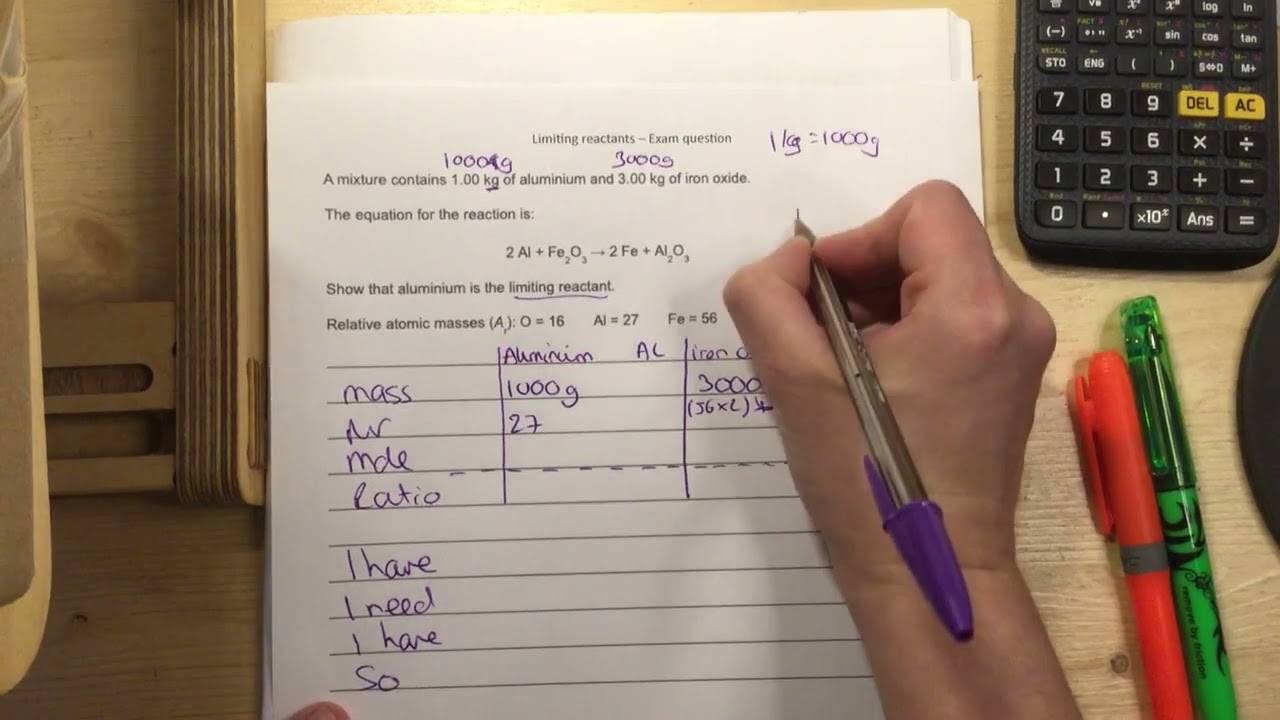 Limiting reactants – Exam question
1 kg = 1000g
1000g 3000g
A mixture contains 1.00 kg of aluminium and 3.00 kg of iron oxide.
The equation for the reaction is:
2 Al + Fe₂O₃ → 2 Fe + Al₂O₃
Show that aluminium is the limiting reactant.
Relative atomic masses (Aᵣ): O = 16 Al = 27 Fe = 56
Aluminium Al iron
mass 1000g 3000
Mr 27 (56×2)+
mole
Ratio
I have
I need
I have
So
log ln
(−) sin cos tan
RECALL
STO ENG ( ) S⇔D M+
7 8 9 DEL AC
4 5 6 × ÷
1 2 3 + −
0 • ×10ˣ Ans =
remove by friction